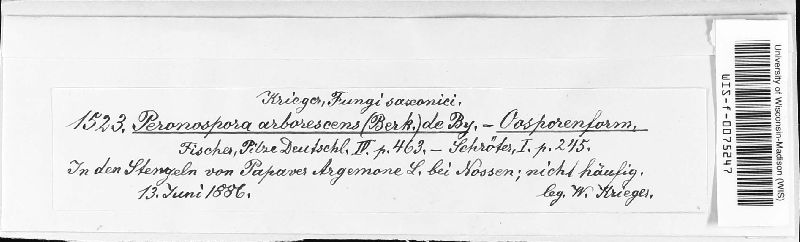 Krieger, Fungi saxonici.
1523. Peronospora arborescens (Berk.) de By. – Oosporenform.
Fischer, Pilze Deutschl. IV. p. 463. – Schröter, I. p. 245.
In den Stengeln von Papaver Argemone L. bei Nossen; nicht häufig.
13. Juni 1886. leg. W. Krieger.
University of Wisconsin-Madison (WIS)
WIS-f-0075247